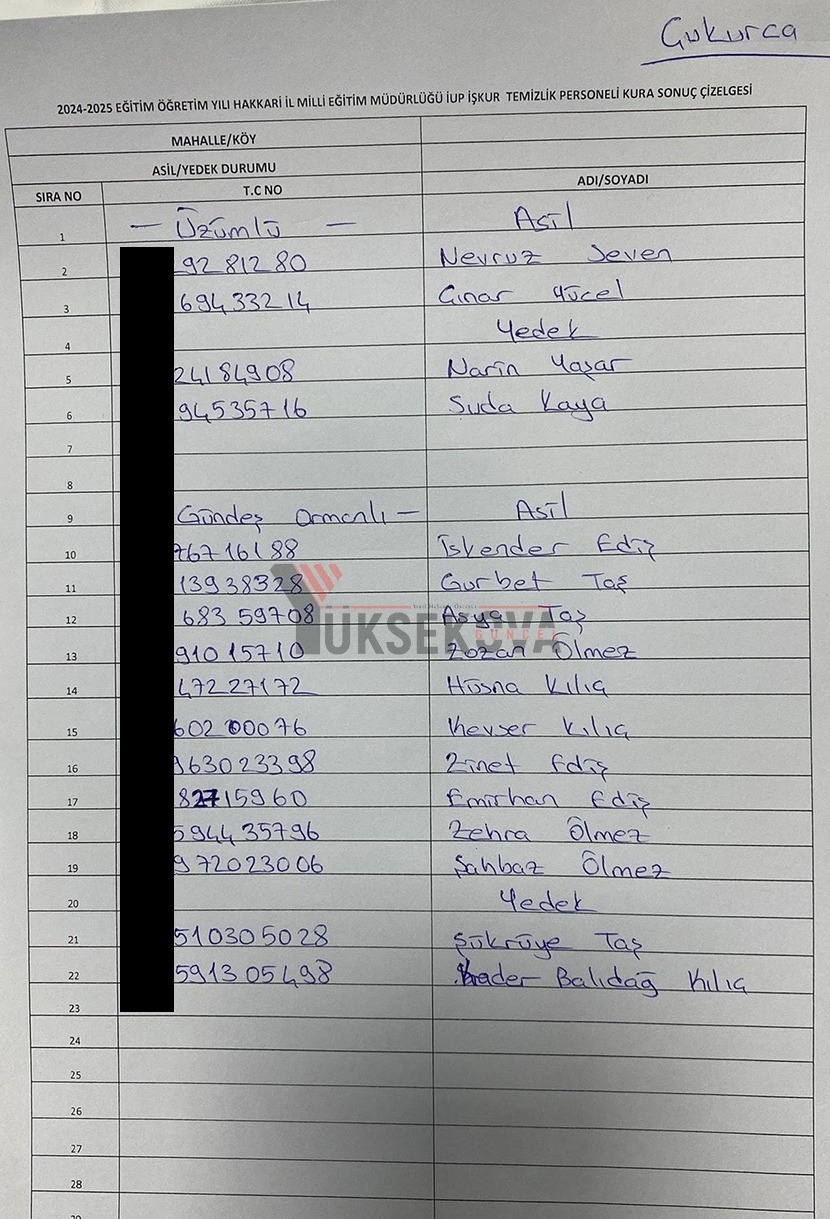 Çukurca
2024-2025 EĞİTİM ÖĞRETİM YILI HAKKARİ İL MİLLİ EĞİTİM MÜDÜRLÜĞÜ İUP İŞKUR TEMİZLİK PERSONELİ KURA SONUÇ ÇİZELGESİ
MAHALLE/KÖY
ASİL/YEDEK DURUMU
SIRA NO T.C NO ADI/SOYADI
1 — Üzümlü — Asil
2 9281280 Nevruz Seven
3 69433214 Çınar Yücel
4 Yedek
5 24184908 Narin Yaşar
6 94535716 Suda Kaya
7
8
9 Gündeş Ormanlı — Asil
10 76716188 İskender Ediş
11 13938328 Gurbet Taş
12 68359708 Asya Taş
YÜKSEKOVA
GÜNCEL
13 91015710 Zozan Ölmez
14 47227172 Hüsna Kılıç
15 60200076 Kevser Kılıç
16 963023398 Zinet Ediş
17 82715960 Emirhan Ediş
18 594435796 Zehra Ölmez
19 972023006 Şahbaz Ölmez
20 Yedek
21 510305028 Şükrüye Taş
22 591305498 Kader Balıdağ Kılıç
23
24
25
26
27
28
29